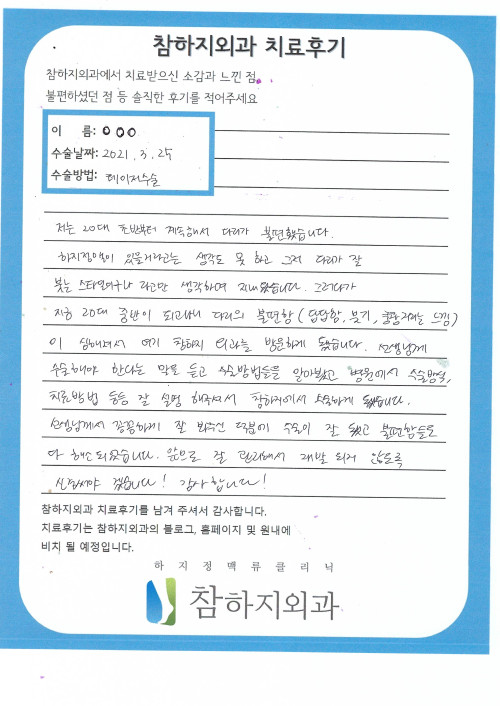 참하지외과 치료후기
참하지외과에서 치료받으신 소감과 느낀 점,
불편하셨던 점 등 솔직한 후기를 적어주세요
이 름: ooo
수술날짜: 2021. 3. 25
수술방법: 레이저수술
저는 20대 초반부터 계속해서 다리가 불편했습니다.
하지정맥이 있을거라고는 생각도 못 하고 그저 다리가 잘
붓는 스타일이구나 라고만 생각하며 지내왔습니다. 그러다가
지금 20대 중반이 되고나니 다리의 불편함(답답함, 붓기, 쿵쾅거리는 느낌)
이 심해져서 여기 참하지 외과를 방문하게 됐습니다. 선생님께
수술해야 한다는 말로 듣고 수술방법들을 알아봤고 병원에서 수술방식,
치료방법 등등 잘 설명 해주셔서 참하지에서 수술하게 됐습니다.
선생님께서 꼼꼼하게 잘 봐주신 덕분에 수술이 잘 됐고 불편함들도
다 해소되었습니다. 앞으로 잘 관리해서 재발 되지 않도록
신경써야 겠습니다! 감사합니다!
참하지외과 치료후기를 남겨 주셔서 감사합니다.
치료후기는 참하지외과의 블로그, 홈페이지 및 원내에
비치 될 예정입니다.
하지정맥류클리닉
참하지외과